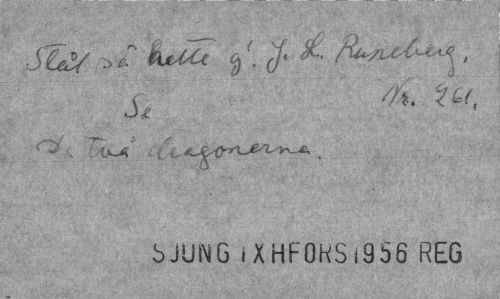 Stål så hette g'. J. L. Runeberg.
Nr. 261.
Se
De två dragonerna.
SJUNG IX HFORS 1956 REG